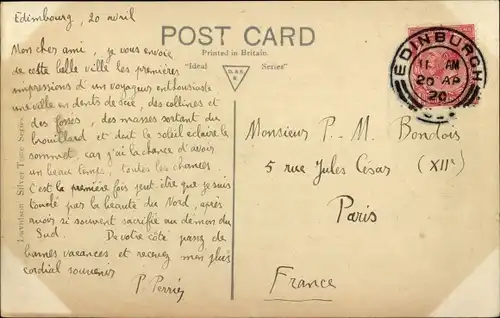 Edimbourg, 20 avril
Mon cher ami, je vous envoie
de cette belle ville les premières
impressions d'un voyageur enthousiaste
une ville en dents de scie, des collines et
des fosses, des masses sortant du
brouillard et dont le soleil éclaire le
sommet, car j'ai la chance d'avoir
un beau temps, toutes les chances.
C'est la première fois peut-être que je suis
touché par la beauté du Nord, après
avoir si souvent sacrifié au démon du
Sud. De votre côté passez de
bonnes vacances et recevez mon plus
cordial souvenir
P. Perrier
POST CARD
Printed in Britain.
"Ideal Series"
Davidson Silver Tone Series
EDINBURGH
11 AM
20 AP
20
Monsieur P.-M. Bondois
5 rue Jules César (XIIe)
Paris
France